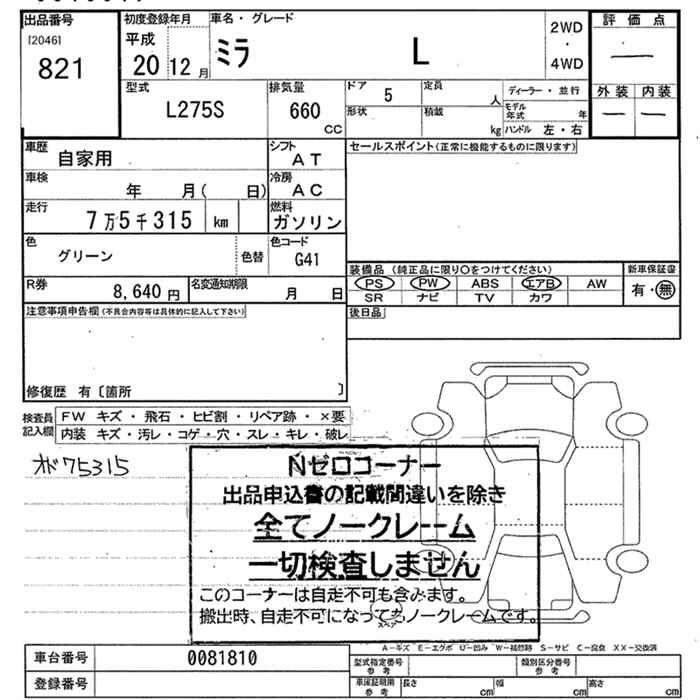 出品番号
[2046]
821
初度登録年月
平成
20 12 月
車名・グレード
ミラ L
2WD
・
4WD
評 価 点
—
外 装 内 装
— —
型式
L275S
排気量
660
CC
ドア 5
定員 人
形状
積載 kg
ディーラー・並行
モデル年式 年
ハンドル 左・右
車歴
自家用
シフト
AT
セールスポイント(正常に機能するものに限ります)
車検
年 月( 日)
冷房
AC
走行
7万5千315 km
燃料
ガソリン
色
グリーン
色替
色コード
G41
装備品 (純正品に限り○をつけてください)
新車保証書
PS PW ABS エアB AW
有・無
SR ナビ TV カワ
R券
8,640 円
名変通知期限
月 日
後日品
注意事項申告欄(不具合内容等は具体的に記入して下さい)
修復歴 有〔箇所 〕
検査員記入欄
FW キズ・飛石・ヒビ割・リペア跡・×要
内装 キズ・汚レ・コゲ・穴・スレ・キレ・破レ
オド75315
Nゼロコーナー
出品申込書の記載間違いを除き
全てノークレーム
一切検査しません
このコーナーは自走不可も含みます。
搬出時、自走不可になってもノークレームです。
スペア
A-キズ E-エクボ U-凹み W-補修跡 S-サビ C-腐食 XX-交換済
車台番号
0081810
登録番号
型式指定番号
参考
類別区分番号
参考
車庫証明用
参考
長さ cm
幅 cm
高さ cm